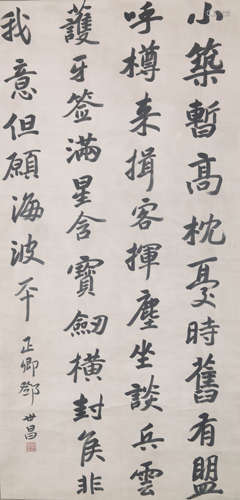 小築暫高枕憂時舊有盟
呼樽来揖客揮麈坐談兵雲
護牙签滿星含寶劔橫封侯非
我意但願海波平 正卿鄧世昌